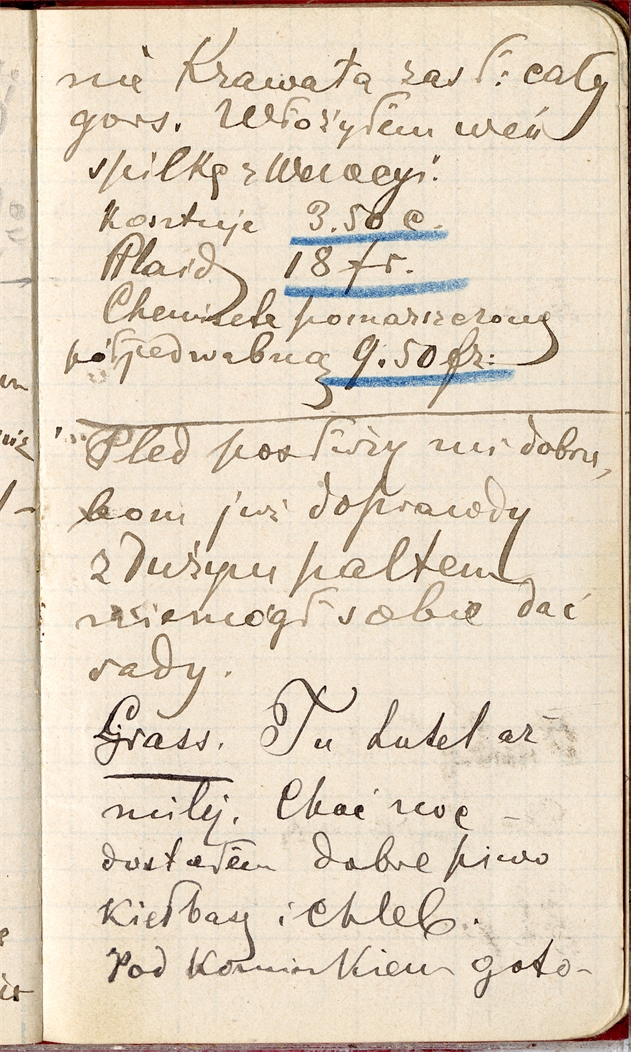 nie Krawata zasł: cały
gors. Włożyłem weń
spilkę z Wenecyi.
Kosztuje 3.50 c.
Plaid 18 fr.
Chemisete pomarszczoną
półjedwabną 9.50 fr.
Pled posłuży mi dobrze,
bom już doprawdy
z Dużym paltem
niemógł sobie dać
rady.
Grass. Tu hotel aż
miły. Choć noc –
dostałem dobre piwo
Kiełbasę i chleb.
Pod Kominkiem goto-